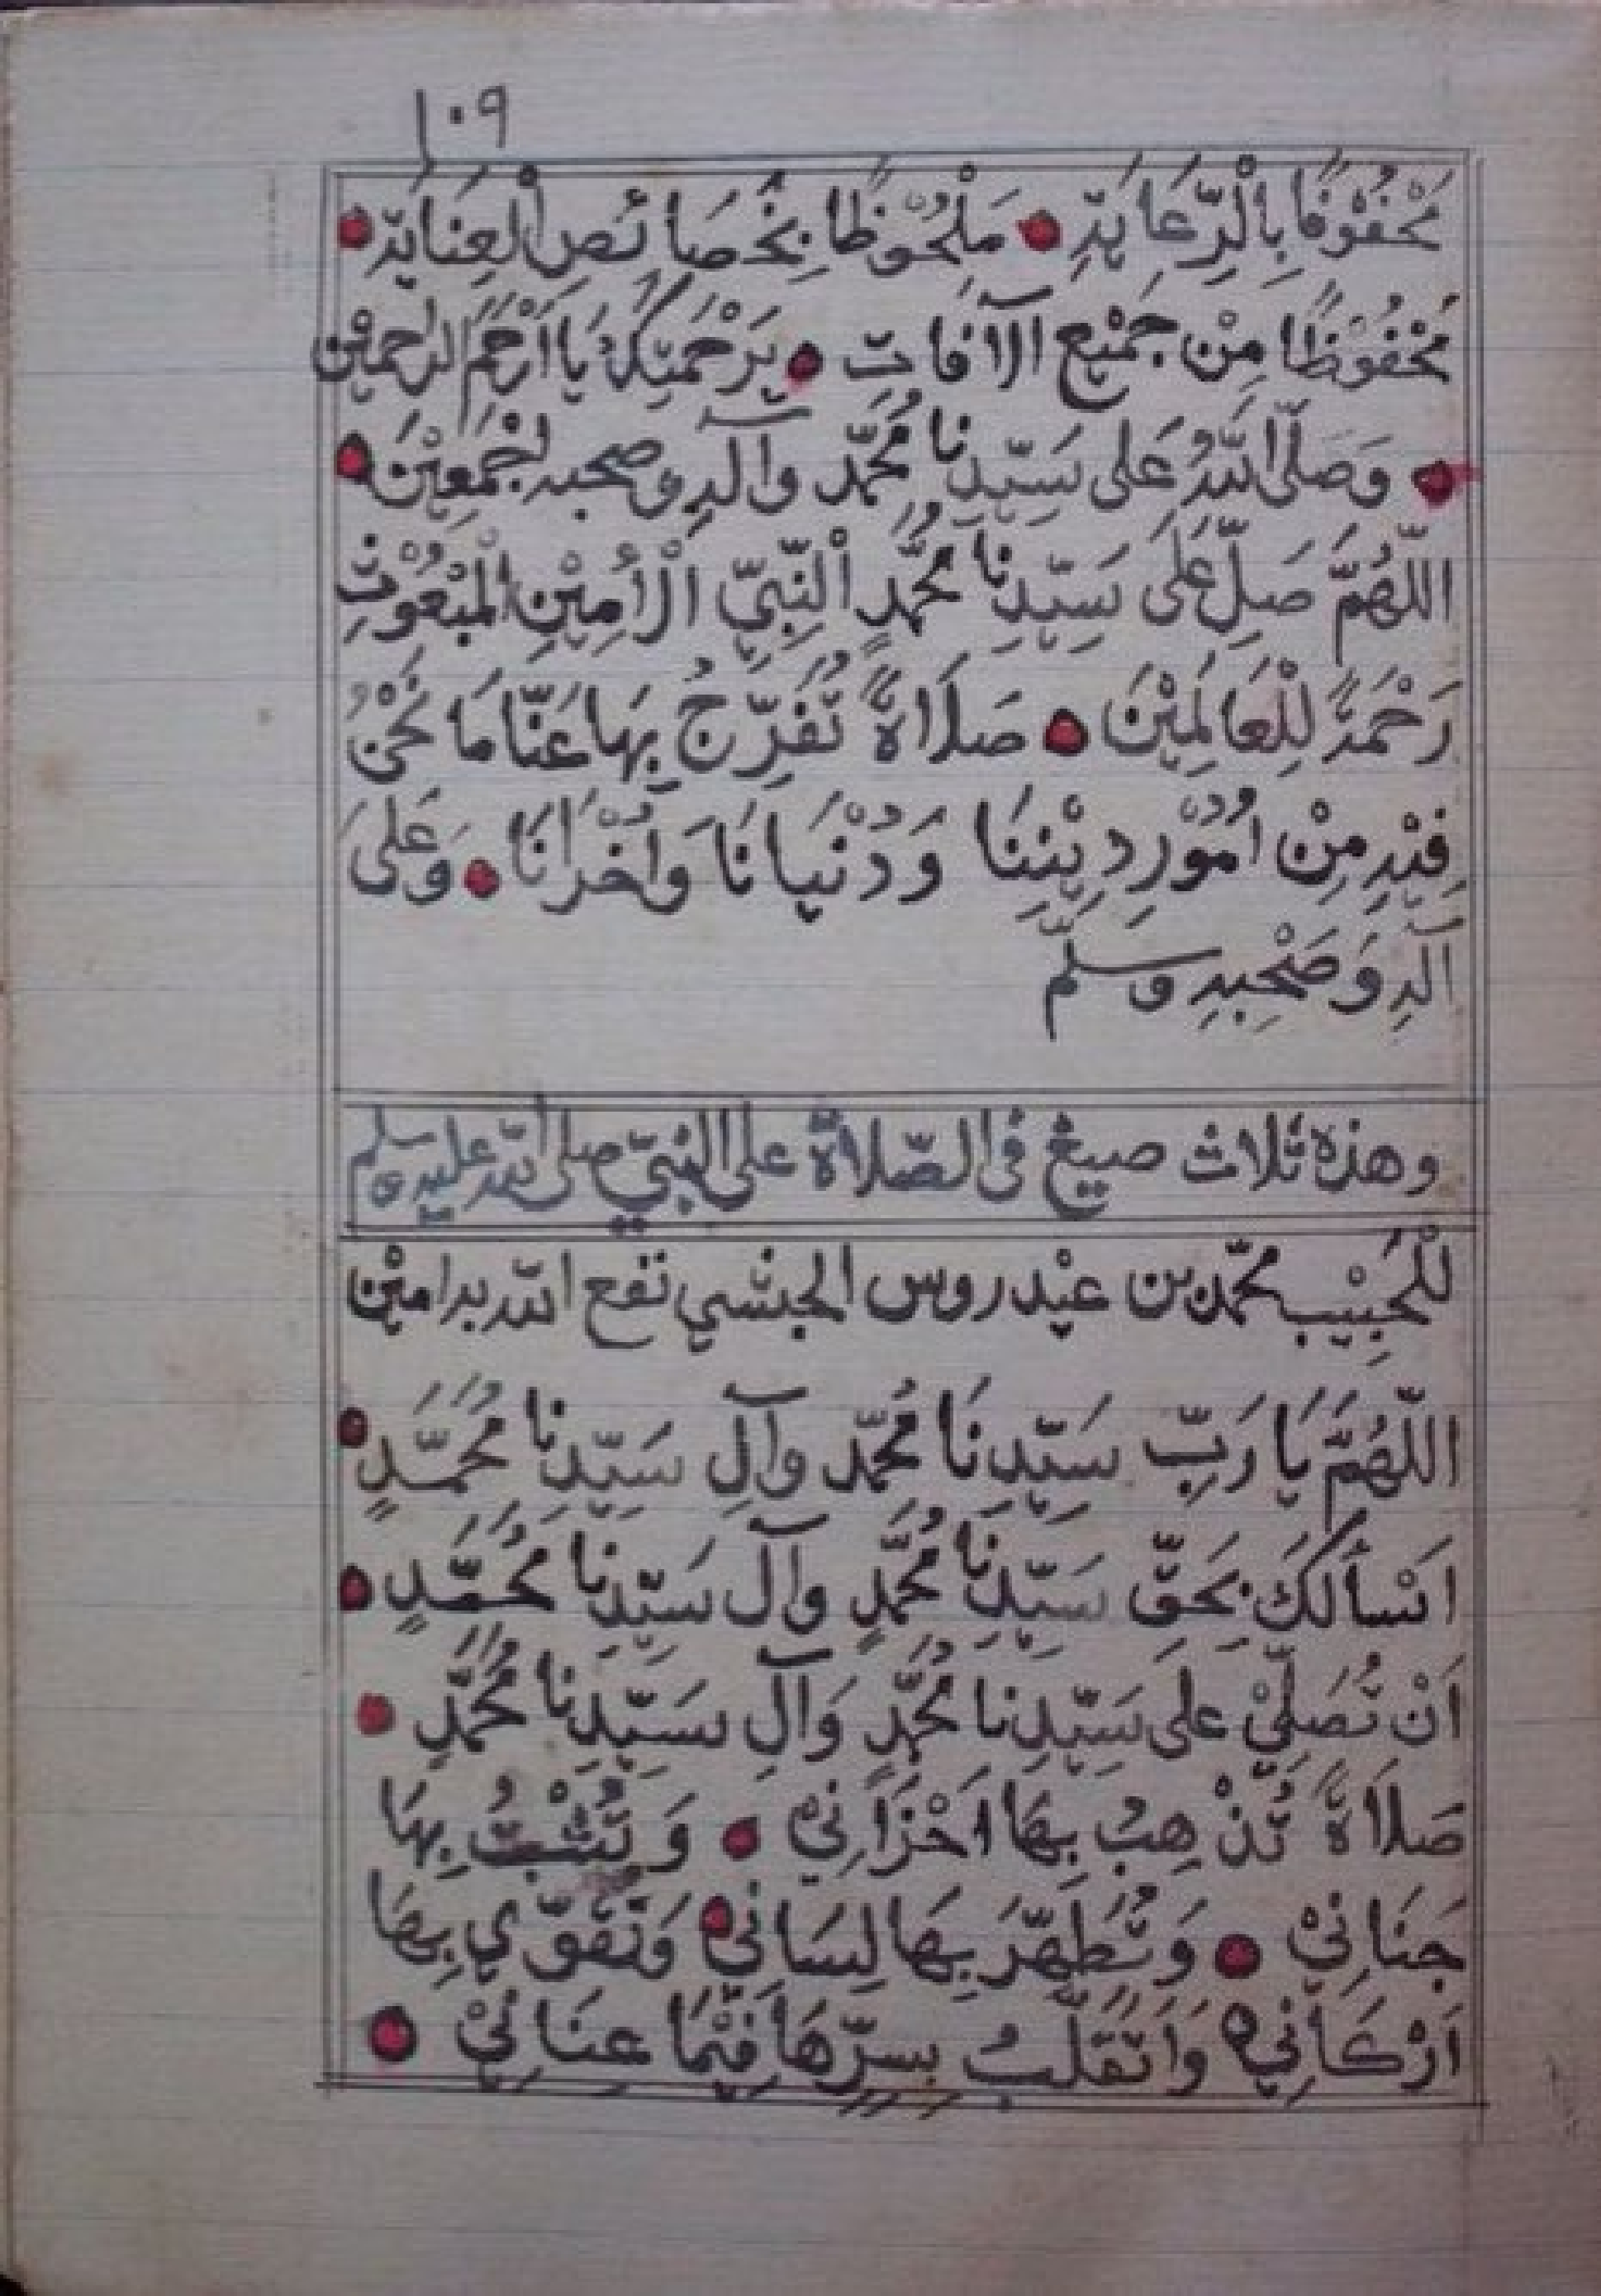 ١٠٩
مَحْفُوْفًا بِالْرِّعَايَةِ مَلْحُوْظًا بِخَصَائِصِ الْعِنَايَة
مَحْفُوْظًا مِنْ جَمِيْعِ الآفَاتِ بِرَحْمَتِكَ يَا اَرْحَمَ الرحمين
وَصَلَّى اللهُ عَلى سَيِّدِنَا مُحَمَّد وآلِهِ وصحبه اجْمَعِيْنَ
اللّهُمَّ صَلِّ عَلَى سَيِّدِنَا مُحَمَّدٍ الْنَّبِيِّ الْأَمِيْنِ الْمَبْعُوْثِ
رَحْمَةً لِلْعَالَمِيْنَ صَلَاةً تُفَرِّجُ بِهَا عَنَّا مَا نَحْنُ
فِيْهِ مِنْ اُمُوْرِ دِيْنِنَا وَدُنْيَانَا وَاُخْرَانَا وَعَلَى
آلِهِ وَصَحْبِهِ وسلّم
وهذه ثلاث صيغ فى الصّلاة على النبيّ صلى الله عليه وسلم
لِلْحَبِيْب محمّد بن عيْدروس الحبشي نفع الله به امين
اللّهُمَّ يَا رَبِّ سَيِّدِنَا مُحَمَّد وآلِ سَيِّدِنَا مُحَمَّدٍ
اَسْأَلُكَ بِحَقِّ سَيِّدِنَا مُحَمَّدٍ وآل سَيِّدِنَا مُحَمَّدٍ
اَنْ تُصَلِّيْ عَلى سَيِّدِنَا مُحَمَّدٍ وَآلِ سَيِّدِنَا مُحَمَّدٍ
صَلَاةً تُذْهِبُ بِهَا اَحْزَانِيْ وَتُثْبِتُ بِهَا
جَنَانِيْ وَتُطَهِّرَ بِهَا لِسَانِيْ وَتُقَوِّي بِهَا
اَرْكَانِيْ وَاَتَقَلَّبُ بِسِرِّهَا فِيْمَا عِنَانِيْ